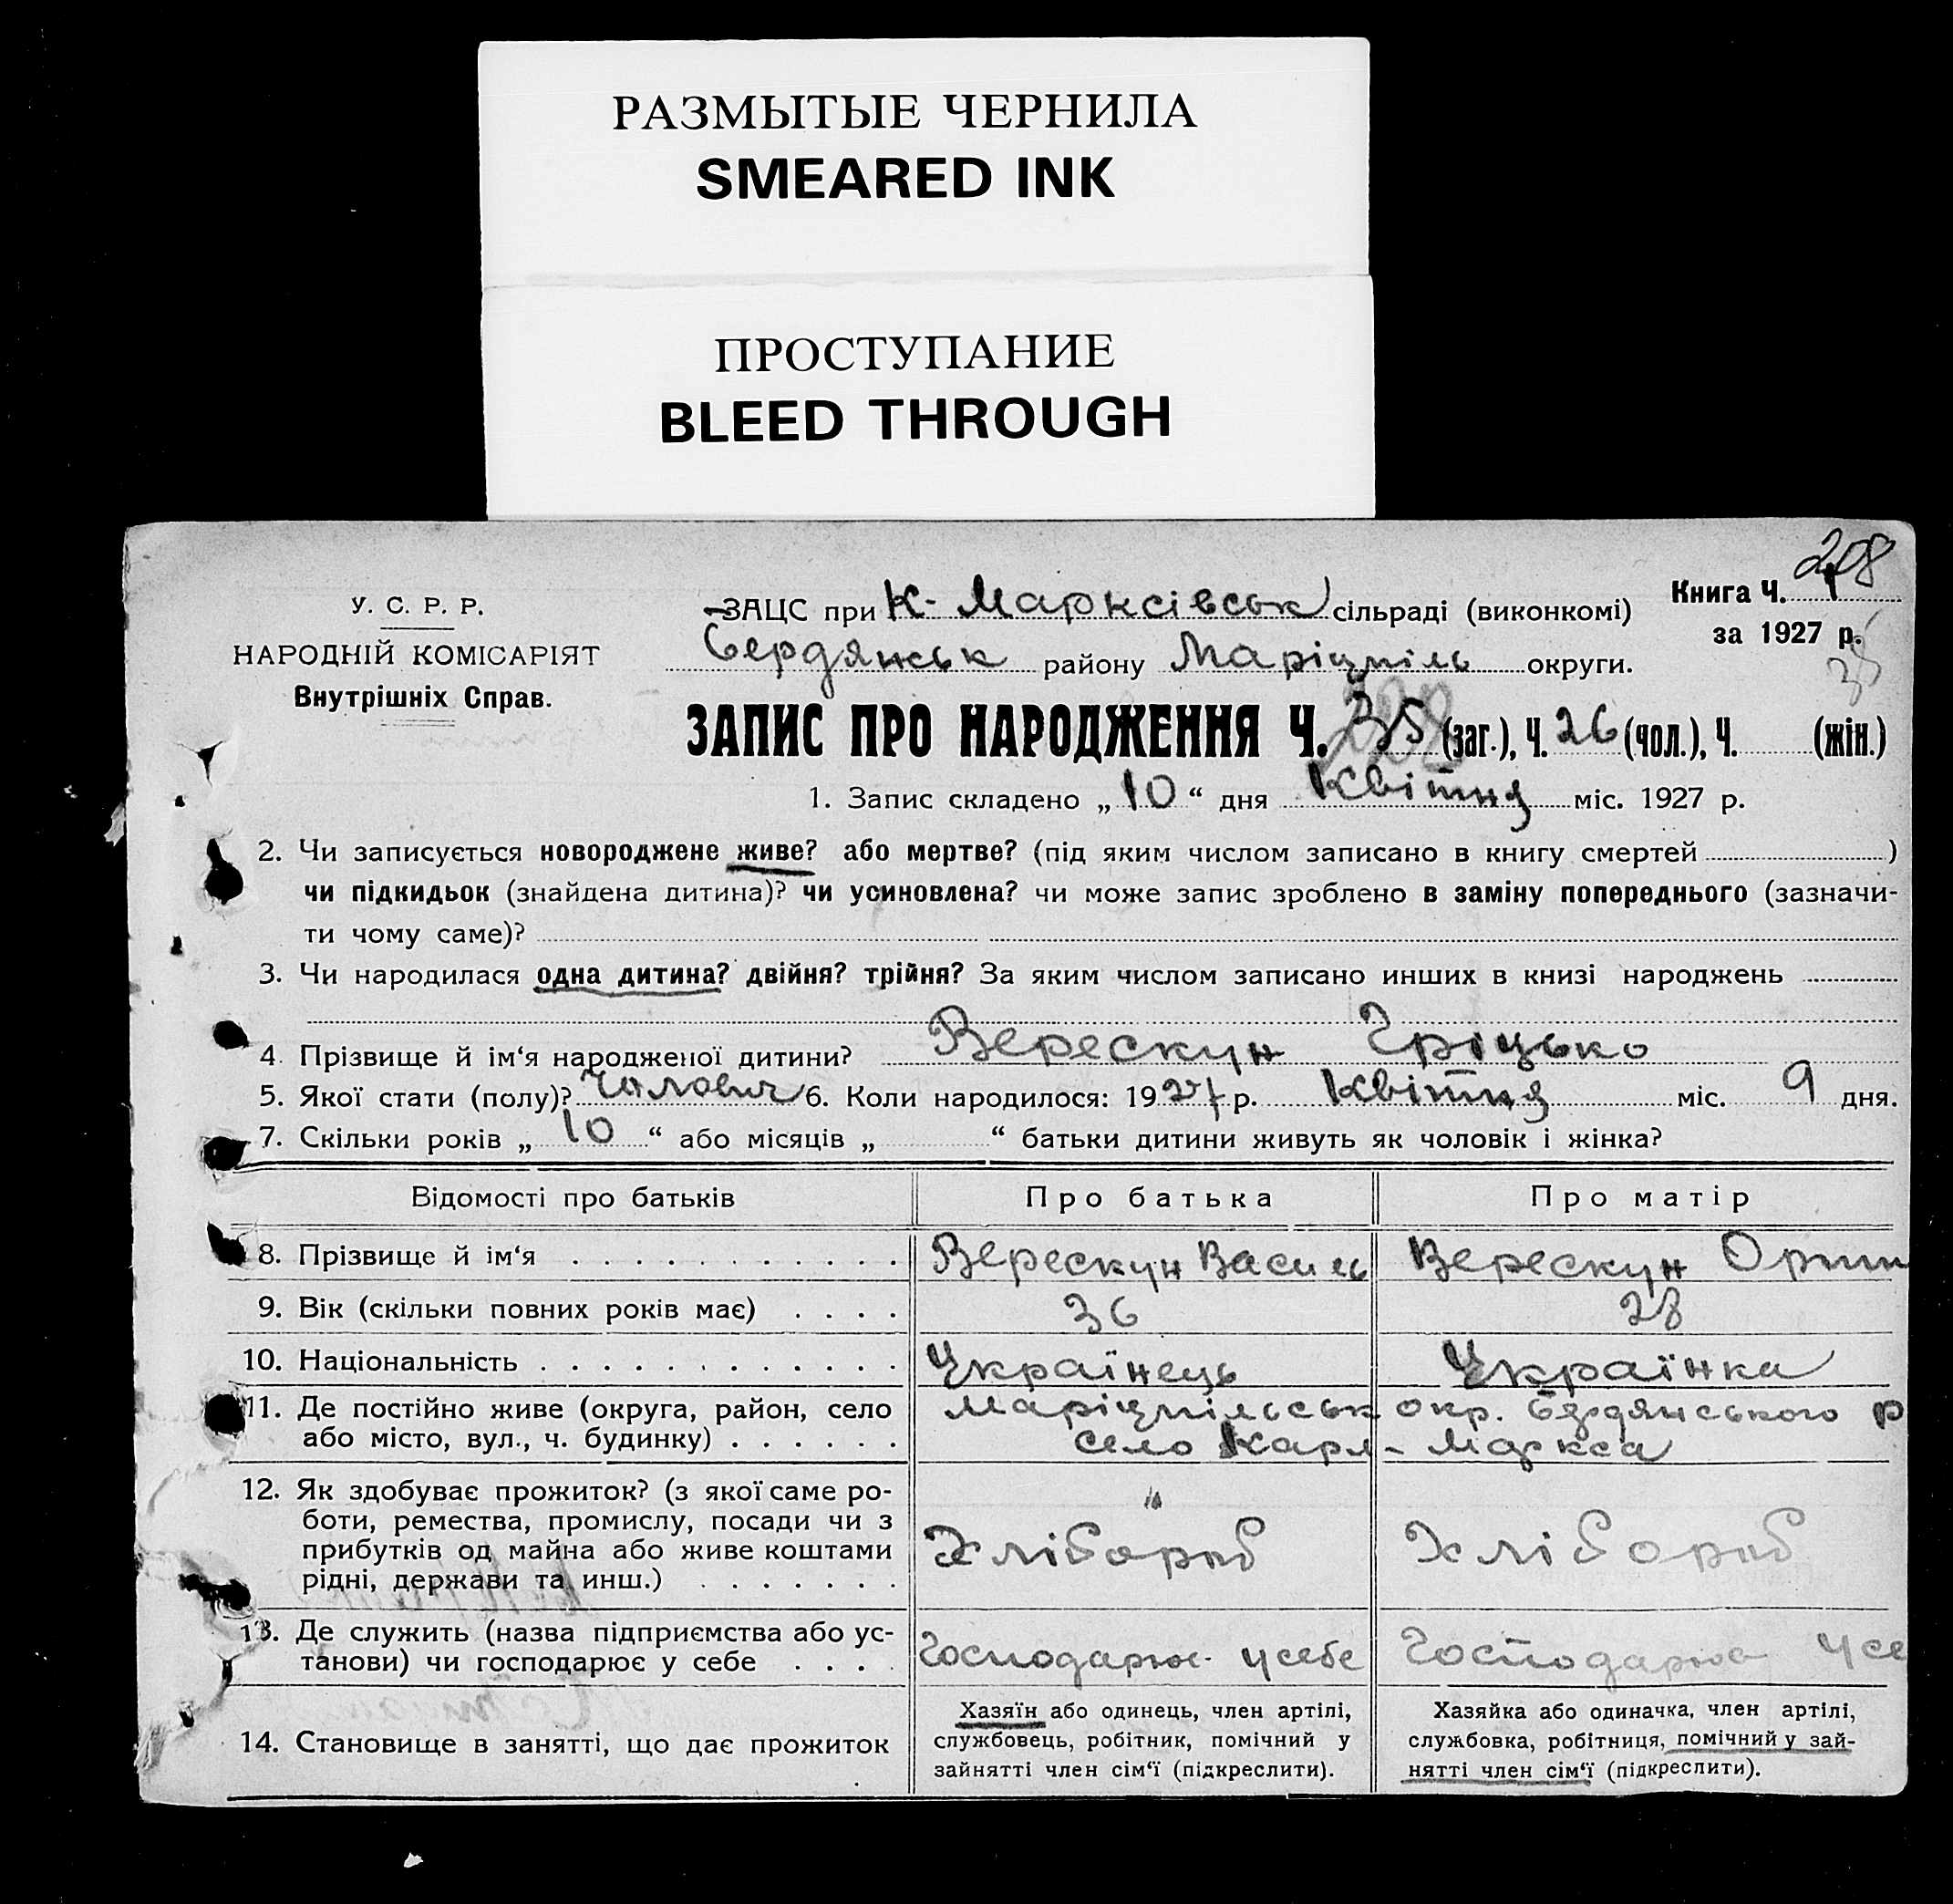 РАЗМЫТЫЕ ЧЕРНИЛА
SMEARED INK
ПРОСТУПАНИЕ
BLEED THROUGH
208
У. С. Р. Р.
НАРОДНІЙ КОМІСАРІЯТ
Внутрішніх Справ.
ЗАЦС при К-Марксівськ сільраді (виконкомі)
Книга Ч. 1
за 1927 р.
Бердянськ району Маріупіль округи.
ЗАПИС ПРО НАРОДЖЕННЯ Ч. 35 (заг.), Ч. 26 (чол.), Ч. (жін.)
1. Запис складено „ 10 “ дня Квітня міс. 1927 р.
2. Чи записується новороджене живе? або мертве? (під яким числом записано в книгу смертей )
чи підкидьок (знайдена дитина)? чи усиновлена? чи може запис зроблено в заміну попереднього (зазначи-
ти чому саме)?
3. Чи народилася одна дитина? двійня? трійня? За яким числом записано инших в книзі народжень
4. Прізвище й ім‘я народженої дитини? Верескун Гріцько
5. Якої стати (полу)? Чоловіч 6. Коли народилося: 1927 р. Квітня міс. 9 дня.
7. Скільки років „ 10 “ або місяців „ “ батьки дитини живуть як чоловік і жінка?
Відомості про батьків Про батька Про матір
8. Прізвище й ім‘я Верескун Василь Верескун Орин
9. Вік (скільки повних років має) 36 28
10. Національність Українець Українка
11. Де постійно живе (округа, район, село Маріупільськ окр. Бердянського р
або місто, вул., ч. будинку) село Карл-Маркса
12. Як здобуває прожиток? (з якої саме ро-
боти, ремества, промислу, посади чи з
прибутків од майна або живе коштами
рідні, держави та инш.) Хлібороб Хлібороб
13. Де служить (назва підприємства або ус-
танови) чи господарює у себе Господарює у себе Господарює у се
14. Становище в занятті, що дає прожиток
Хазяїн або одинець, член артілі,
службовець, робітник, помічний у
зайнятті член сім‘ї (підкреслити).
Хазяйка або одиначка, член артілі,
службовка, робітниця, помічний у зай-
нятті член сім‘ї (підкреслити).